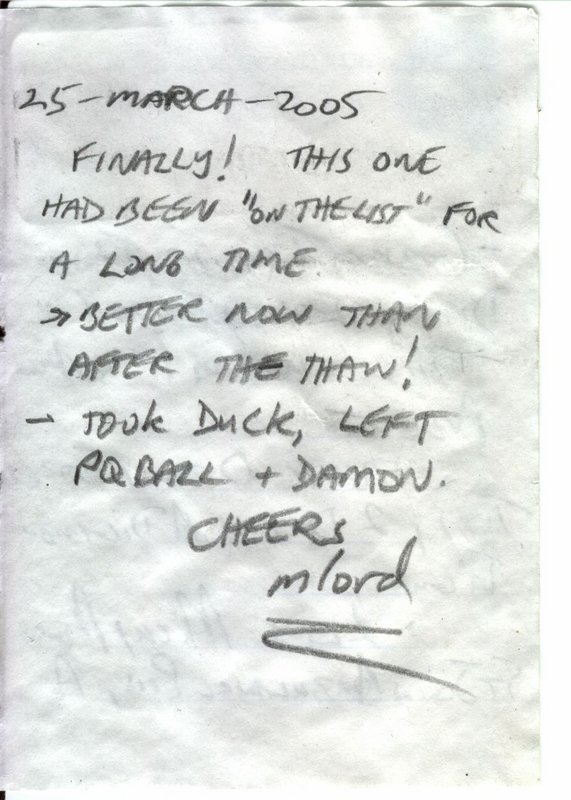 25-MARCH-2005
FINALLY! THIS ONE
HAD BEEN "ON THE LIST" FOR
A LONG TIME.
→ BETTER NOW THAN
AFTER THE THAW!
- TOOK DUCK, LEFT
PQ BALL + DAMON.
CHEERS
mlord